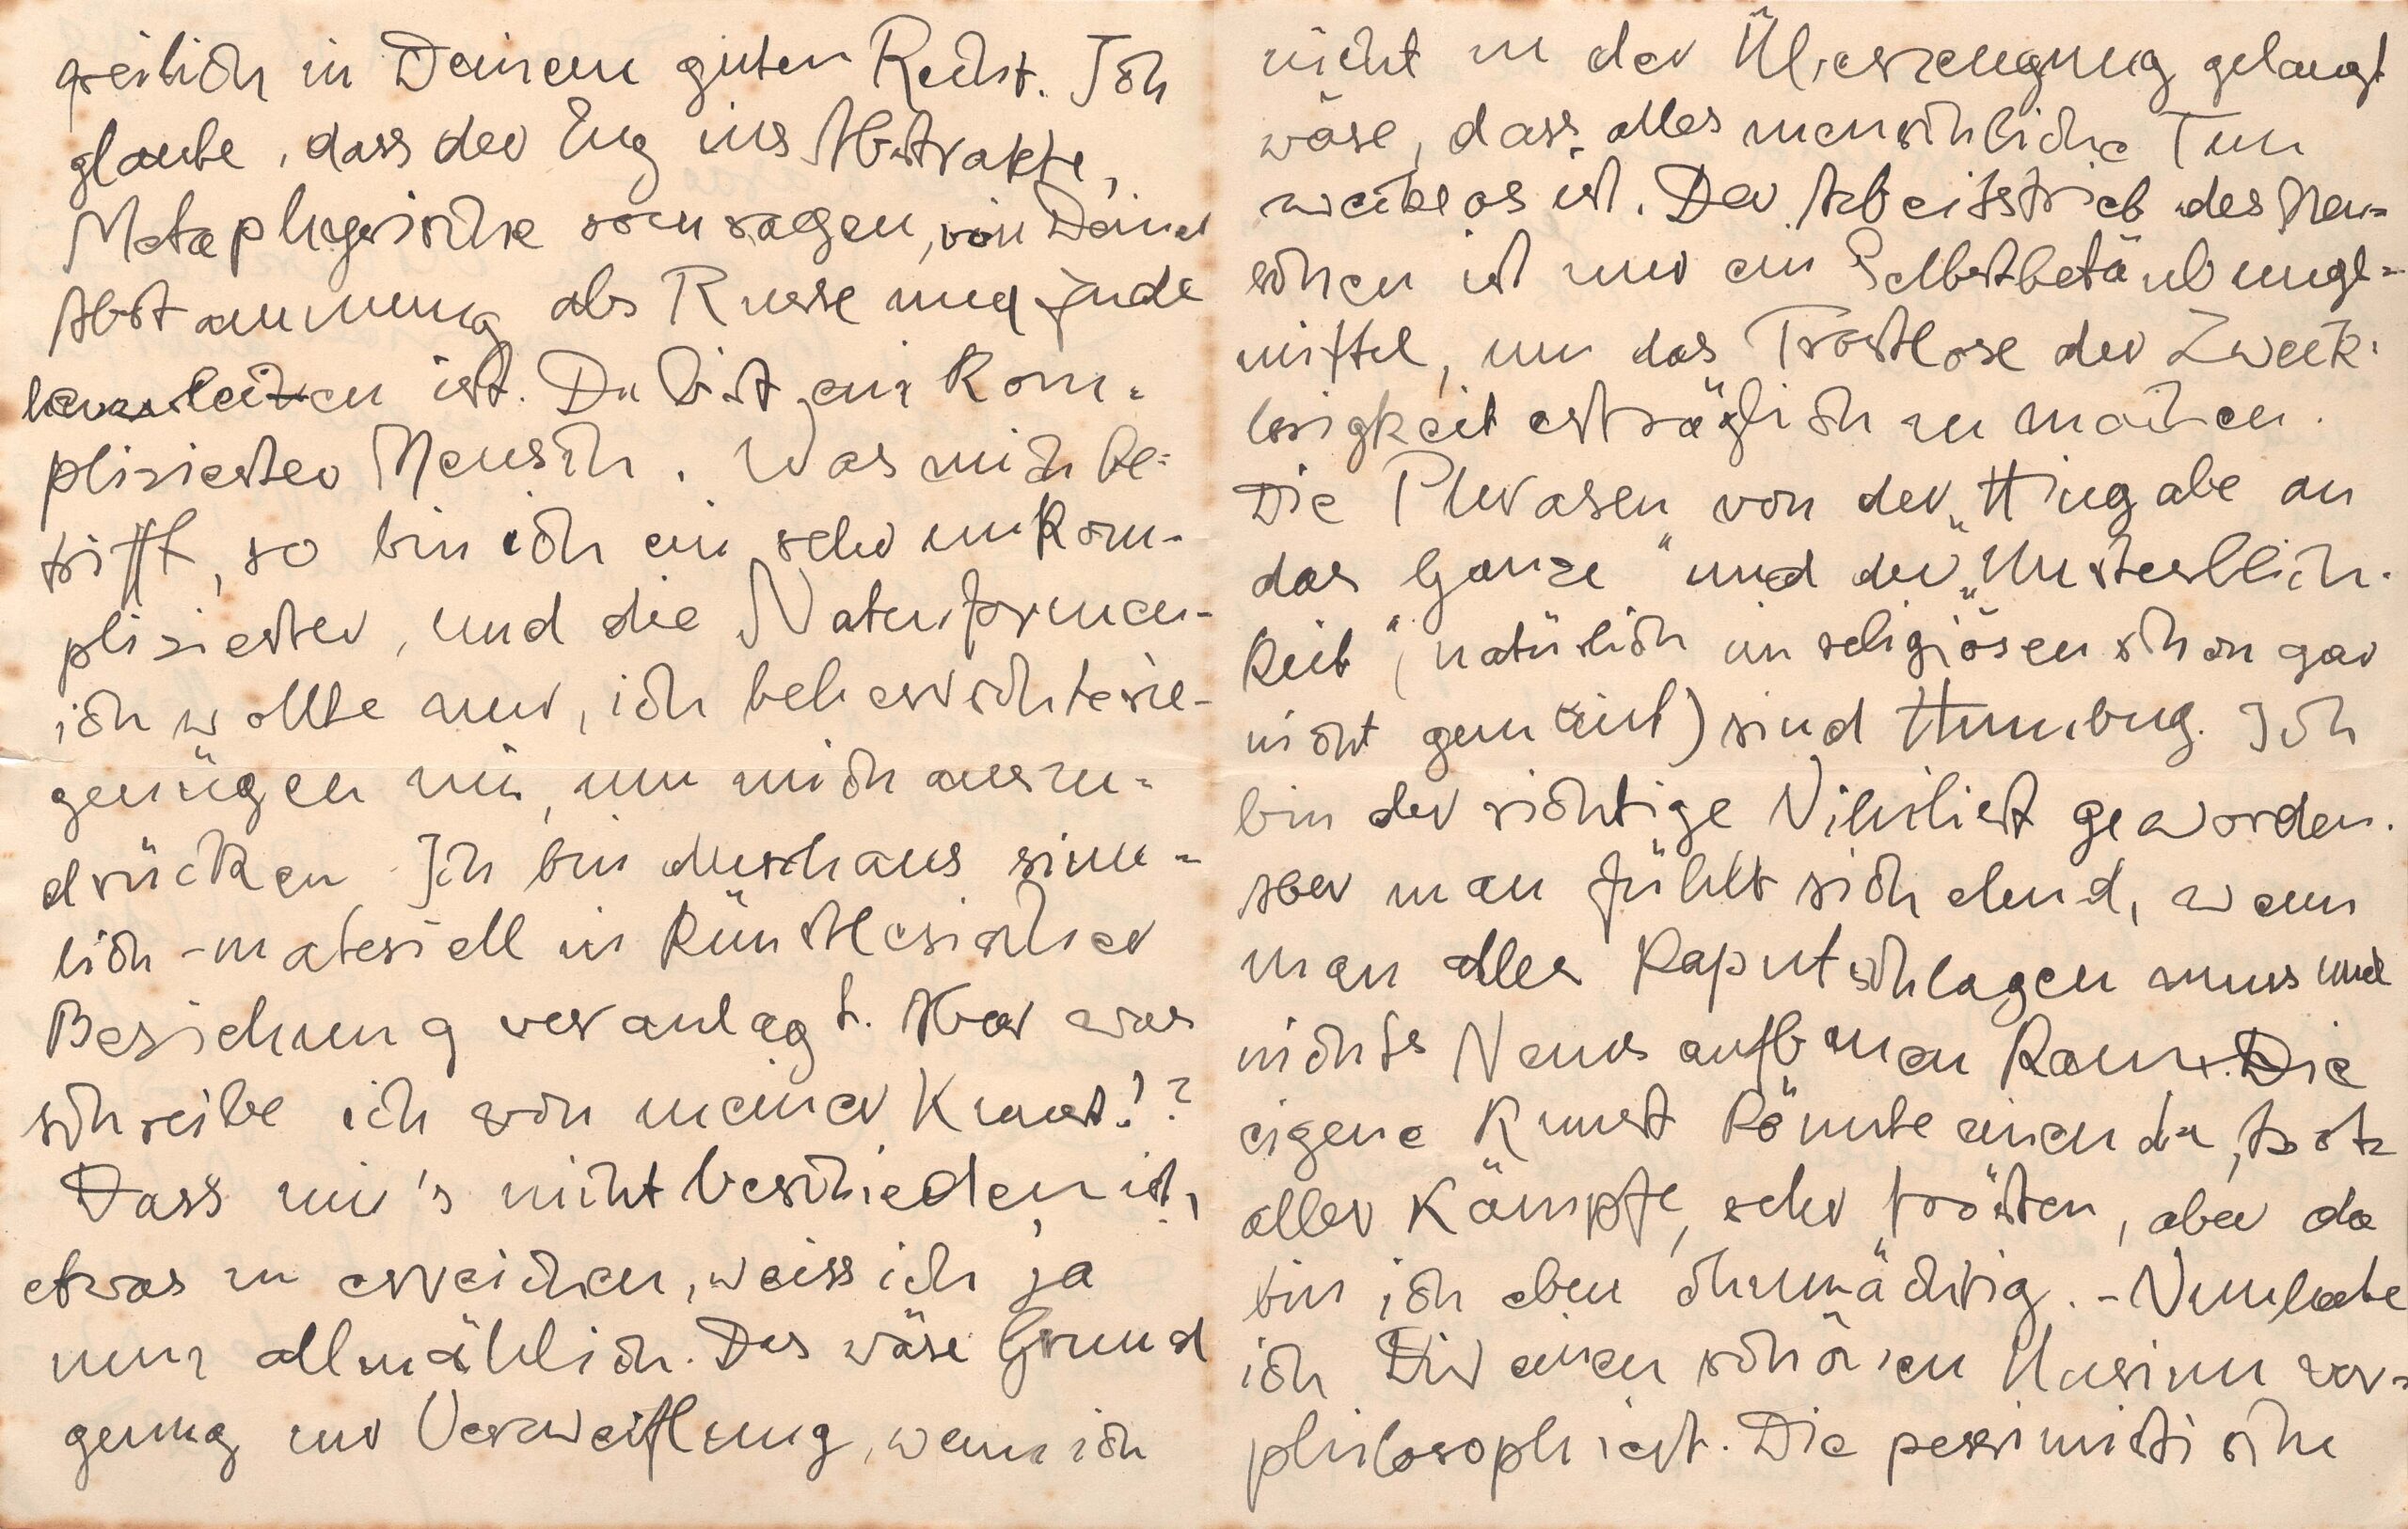 freilich in Deinem guten Recht. Ich
glaube, dass der Zug ins Abstrakte,
Metaphysische sozusagen, von Deiner
Abstammung als Russe und Jude
herzuleiten ist. Du bist ein kom-
plizierter Mensch. Was mich be-
trifft, so bin ich ein sehr unkom-
plizierter, und die Naturformen-
ich wollte nur, ich beherrschte sie-
genügen mir, um mich auszu-
drücken. Ich bin durchaus sinn-
lich-materiell in künstlerischer
Beziehung veranlagt. Aber was
schreibe ich von meiner Kunst!?
Dass mir's nicht beschieden ist,
etwas zu erreichen, weiss ich ja
nun allmählich. Das wäre Grund
genug zur Verzweiflung, wenn ich
nicht zu der Überzeugung gelangt
wäre, dass alles menschliche Tun
wertlos ist. Der Arbeitstrieb des Men-
schen ist nur ein Selbstbetäubungs-
mittel, um das Trostlose der Zweck-
losigkeit erträglich zu machen.
Die Phrasen von der „Hingabe an
das Ganze" und der „Unsterblich-
keit" (natürlich im religiösen schon gar
nicht gemeint) sind Humbug. Ich
bin der richtige Nihilist geworden.
Aber man fühlt sich elend, wenn
man alles kaputschlagen muss und
nichts Neues aufbauen kann. Die
eigene Kunst könnte einen da, trotz
aller Kämpfe, sehr trösten, aber da
bin ich eben ohnmächtig. - Nun habe
ich Dir einen schönen Unsinn vor-
philosophiert. Die pessimistische